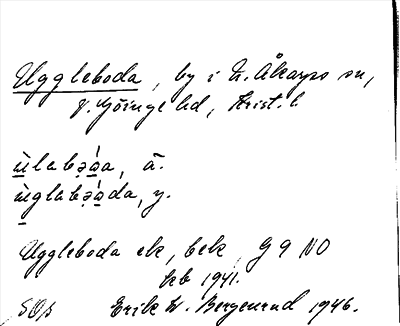 Uggleboda, by i N. Åkarps sn,
V. Göinge hd, Krist. l.
ùlabə̣áa, ä.
ùglabə̣áda, y.
Uggleboda ek, bek, G 9 NO
hb 1941.
Erik W. Bergenrud 1946.